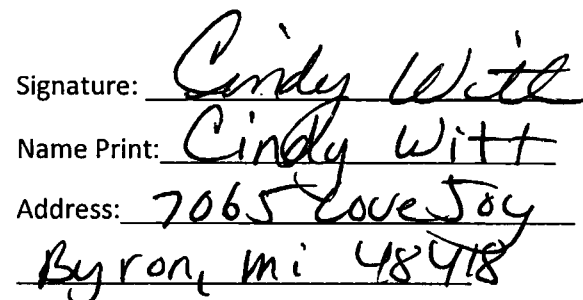 Signature: Cindy Witt
Name Print: Cindy Witt
Address: 7065 LoveJoy
Byron, mi 48418